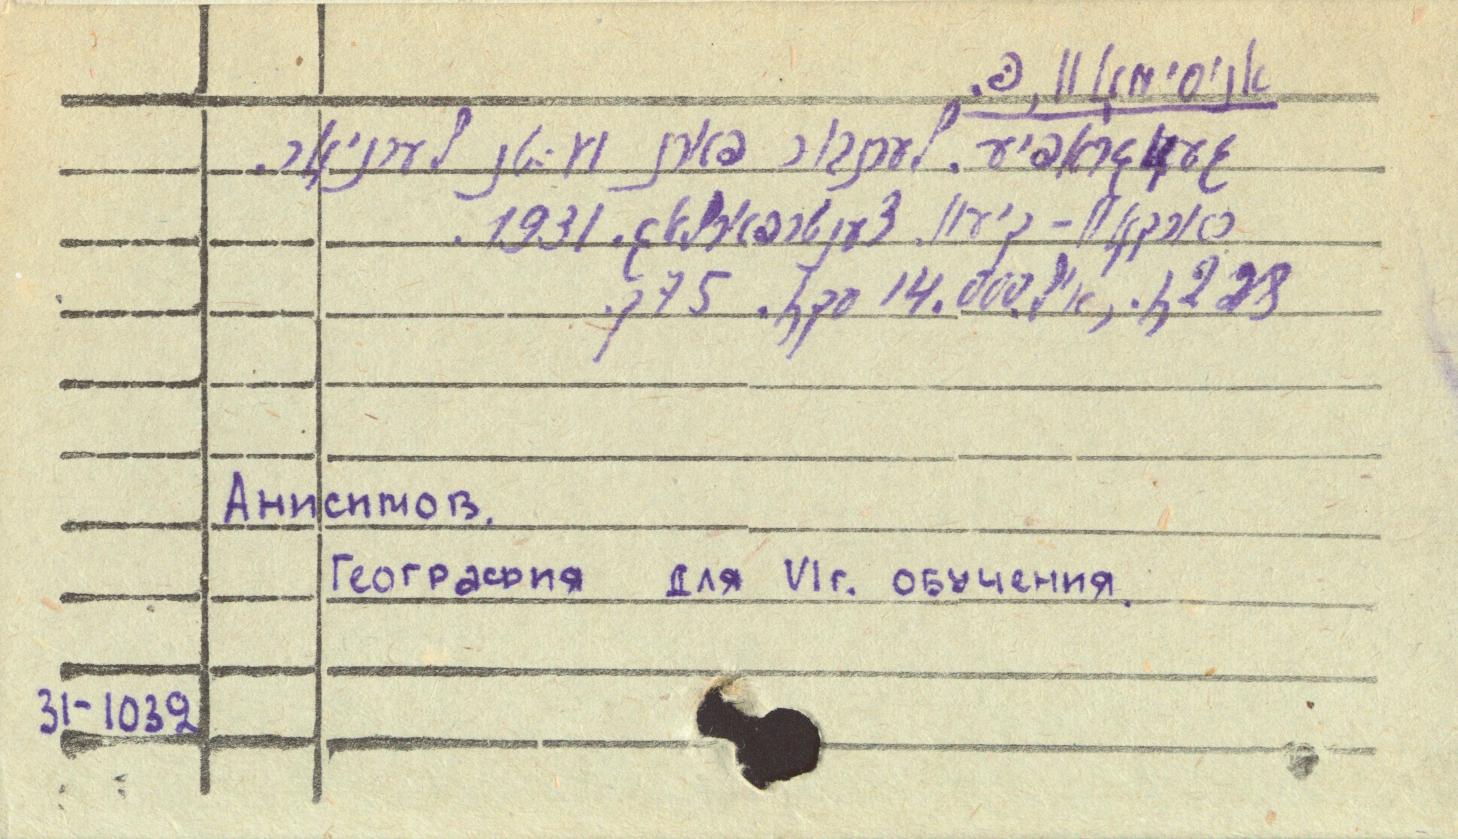 אניסימאוו, פ.
געאגראפיע. לערנבוך פארן VI-טן לערניאר.
כארקאוו - קיעוו. צענטרפארלאג. 1931.
228 ז., איל. 14.000 עקז. 75 ק.
Анисимов.
География для VI г. обучения.
31-1039